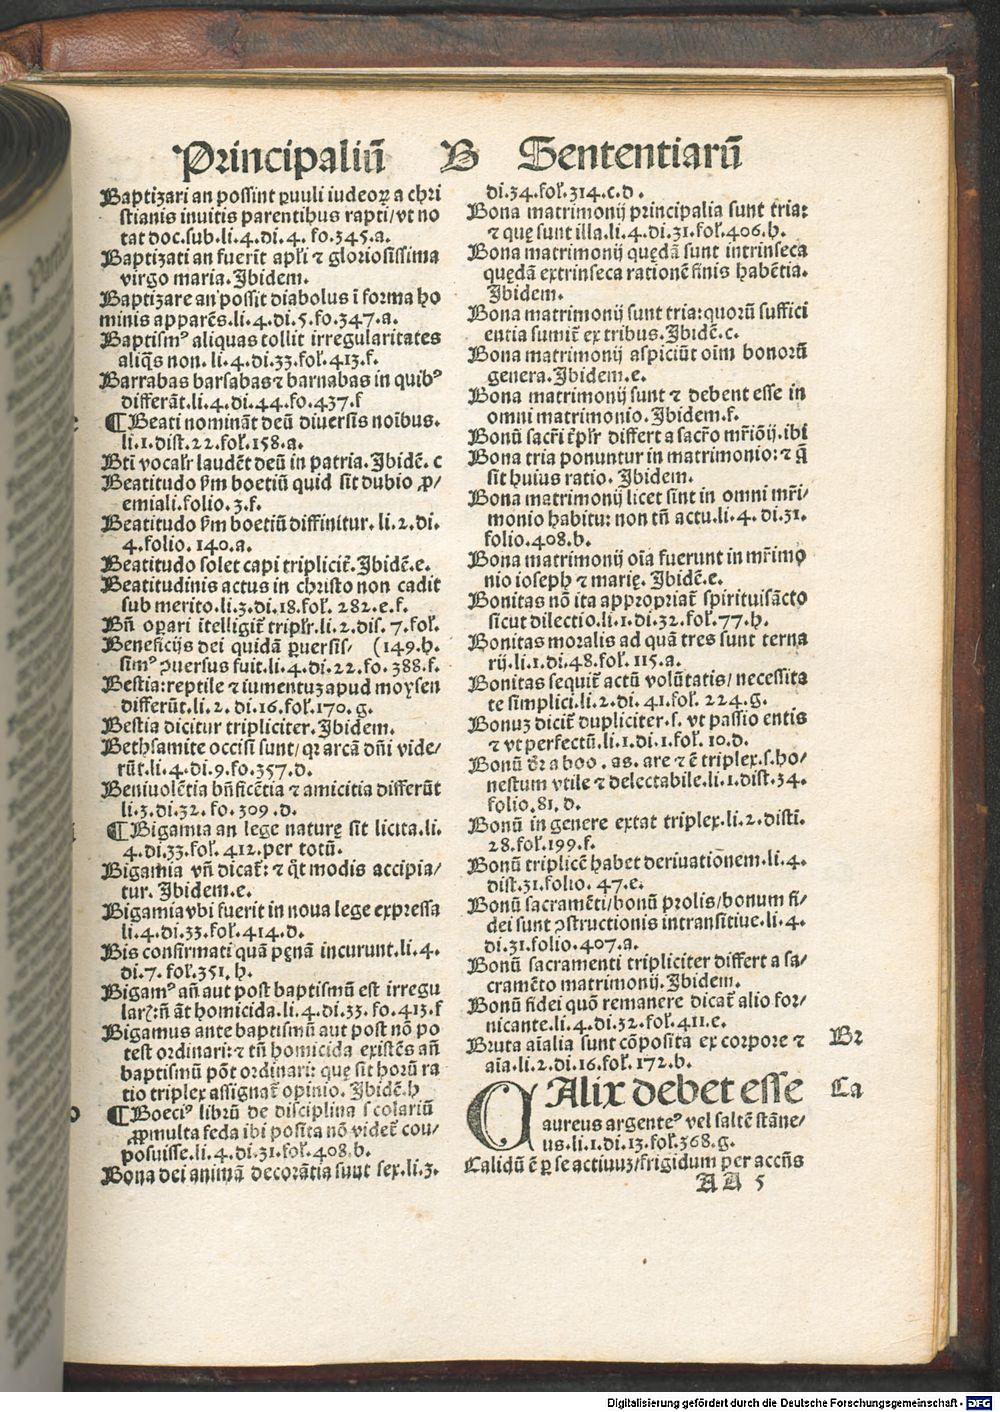 Principaliū B Sententiarū
Baptizari an possint ꝑuuli iudeoꝝ a chri
stianis inuitis parentibus rapti/vt no
tat doc.sub.li.4.di.4. fo.345.a.
Baptizati an fuerīt apl'i ⁊ gloriosissima
virgo maria. Ibidem.
Baptizare an possit diabolus ī forma ho
minis apparēs.li.4.di.5.fo.347.a.
Baptismꝰ aliquas tollit irregularitates
aliq̄s non. li.4.di.33.fol'.413.f.
Barrabas barsabas ⁊ barnabas in quibꝰ
differāt.li.4.di.44.fo.437.f
¶Beati nomināt deū diuersis noībus.
li.1.dist.22.fol'.158.a.
Bt̄i vocal'r laudēt deū in patria. Ibidē. c
Beatitudo ẜm boetiū quid sit dubio ꝓ/
emiali.folio.3.f.
Beatitudo ẜm boetiū diffinitur. li.2.di.
4.folio.140.a.
Beatitudo solet capi triplicit̄. Ibidē.e.
Beatitudinis actus in christo non cadit
sub merito.li.3.di.18.fol'. 282.e.f.
Bn̄ oꝑari ītelligit̄ tripl'r.li.2.dis.7.fol'.
Beneficijs dei quidā ꝑuersis/ (149.h.
simꝰ ꝯuersus fuit.li.4.di.22.fo.388.f.
Bestia:reptile ⁊ iumentuꝫ apud moysen
differūt.li.2. di.16.fol'.170.g.
Bestia dicitur tripliciter. Ibidem.
Bethsamite occisi sunt/ qꝛ arcā dn̄i vide/
rūt.li.4.di.9.fo.357.d.
Beniuolētia bn̄ficētia ⁊ amicitia differūt
li.3.di.32. fo.309.d.
¶Bigamia an lege naturę sit licita.li.
4.di.33.fol'.412.per totū.
Bigamia vn̄ dicat̄: ⁊ q̄t modis accipia/
tur. Ibidem.e.
Bigamia vbi fuerit in noua lege expressa
li.4.di.33.fol'.414.d.
Bis confirmati quā pęnā incurunt.li.4.
di.7. fol'.351.h.
Bigamꝰ an̄ aut post baptismū est irregu
lar̄:n̄ āt homicida.li.4.di.33. fo.413.f
Bigamus ante baptismū aut post nō po
test ordinari:⁊ tn̄ homicida existēs an̄
baptismū pōt ordinari: quę sit horū ra
tio triplex assignat̄ opinio. Ibidē.h
¶Boeciꝰ librū de disciplina scolariū
ꝓpmulta feda ibi posita nō videt̄ cou/
posuisse.li.4.di.31.fol'.408.b.
Bona dei animā decorātia sunt sex.li.3.
di.34.fol'.314.c.d.
Bona matrimonij principalia sunt tria:
⁊ quę sunt illa.li.4.di.31.fol'.406.h.
Bona matrimonij quędā sunt intrinseca
quędā extrinseca rationē finis habētia.
Ibidem.
Bona matrimonij sunt tria:quorū suffici
entia sumit̄ ex tribus. Ibidē.c.
Bona matrimonij aspiciūt oīm bonorū
genera. Ibidem.e.
Bona matrimonij sunt ⁊ debent esse in
omni matrimonio. Ibidem.f.
Bonū sacr̄i t̄pl'r differt a sacr̄o mr̄iōij.ibi
Bona tria ponuntur in matrimonio: ⁊ q̄
sit huius ratio. Ibidem.
Bona matrimonij licet sint in omni mr̄i/
monio habitu: non tn̄ actu.li.4. di.31.
folio.408.b.
Bona matrimonij oīa fuerunt in mr̄imo
nio ioseph ⁊ marię. Ibidē.e.
Bonitas nō ita appropriat̄ spirituisācto
sicut dilectio.li.1.di.32.fol'.77.h.
Bonitas moralis ad quā tres sunt terna
rij.li.1.di.48.fol'.115.a.
Bonitas sequit̄ actū volūtatis/ necessita
te simplici.li.2.di.41.fol'. 224.g.
Bonuꝫ dicit̄ dupliciter.s. vt passio entis
⁊ vt perfectū.li.1.di.1.fol'.10.d.
Bonū dr̄ a boo.as.are ⁊ ē triplex.s.ho/
nestum vtile ⁊ delectabile.li.1.dist.34.
folio.81.d.
Bonū in genere extat triplex.li.2.disti.
28.fol'.199.f.
Bonū triplicē habet deriuationem.li.4.
dist.31.folio. 47.e.
Bonū sacramēti/bonū prolis/bonum fi/
dei sunt ꝯstructionis intransitiue.li.4.
di.31.folio.407.a.
Bonū sacramenti tripliciter differt a sa/
cramēto matrimonij. Ibidem.
Bonū fidei quō remanere dicat̄ alio for/
nicante.li.4.di.32.fol'.411.e.
Bruta aīalia sunt cōposita ex corpore ⁊
aīa.li.2.di.16.fol'.172.b.
Br
CAlix debet esse
Ca
aureus argenteꝰ vel saltē stāne/
us.li.1.di.13.fol'.368.g.
Calidū ē ꝑ se actiuuꝫ/frigidum per accn̄s
AA 5
Digitalisierung gefördert durch die Deutsche Forschungsgemeinschaft - DFG